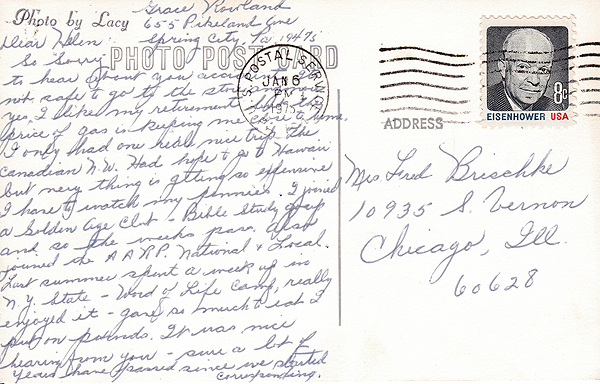 Photo by Lacy
Grace Rowland
655 Pikeland Ave
Spring City, Pa 19475
PHOTO POST CARD
Dear Helen
So Sorry
to hear about you accident
not safe to go to the store anymore
Yes, I like my retirement but the
price of gas is keeping me close to home.
I only had one real nice trip. the
Canadian N.W. Had hope to go to Hawaii
but every thing is getting so expensive
I have to watch my pennies. I joined
a Golden Age Club - Bible Study group
and so the weeks pass. Also
joined the AARP. National & Local.
Last summer spent a week up in
N.Y. State - Word of Life Camp, really
enjoyed it - gave so much to eat I
put on pounds. It was nice
hearing from you - sure a lot of
years have passed since we started
corresponding.
U.S. POSTAL SERVICE
JAN 6
PM
1975
8c
EISENHOWER USA
ADDRESS
Mrs Fred Brischke
10935 S. Vernon
Chicago, Ill.
60628